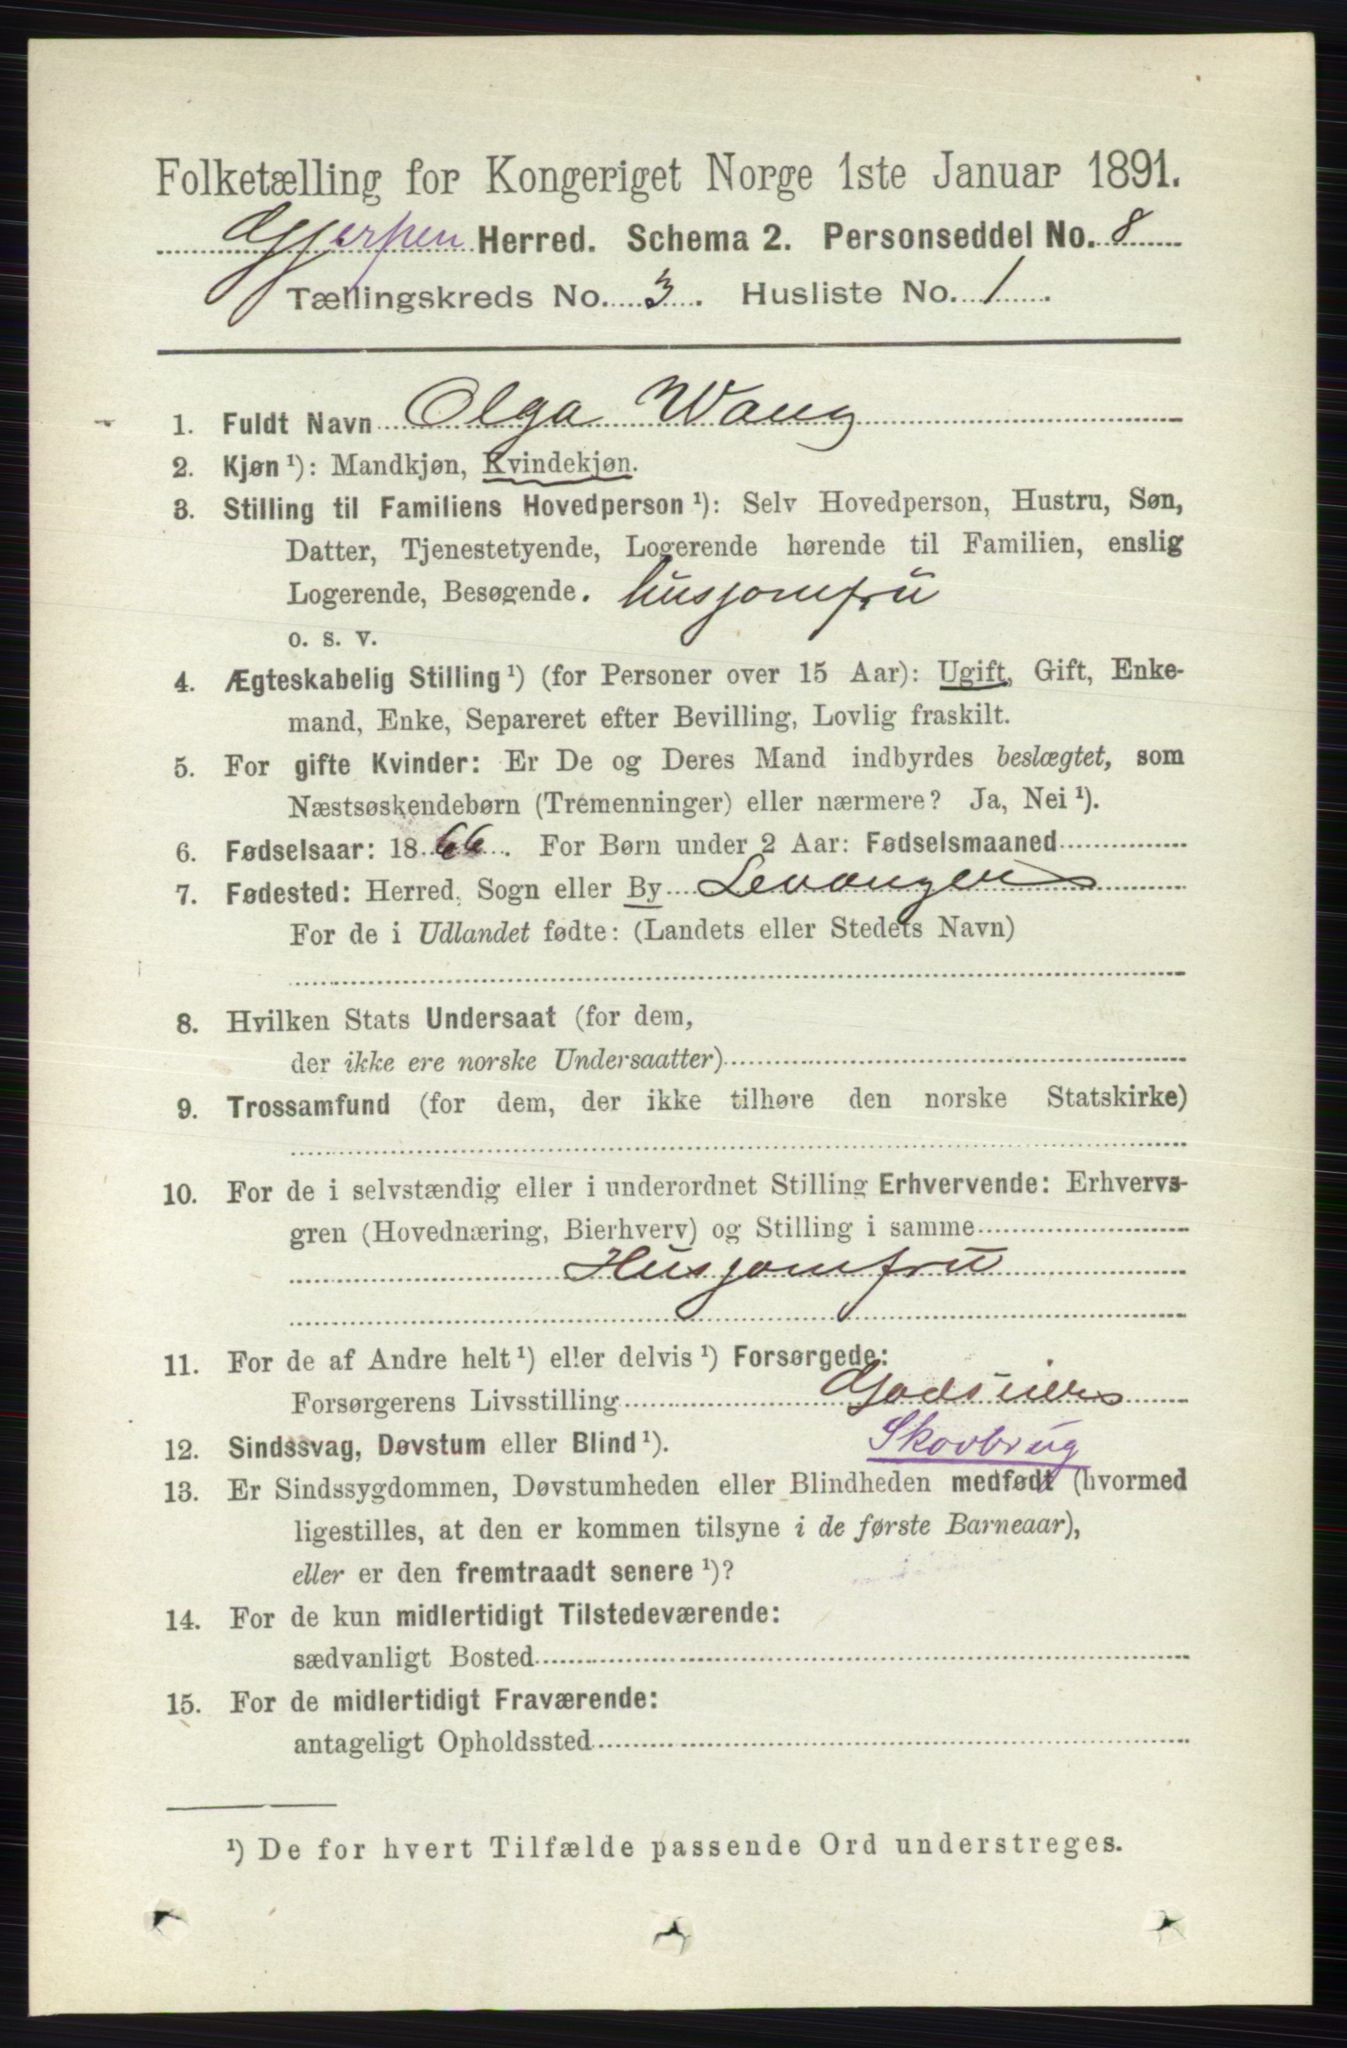 Folketælling for Kongeriget Norge 1ste Januar 1891.
Gjerpen Herred. Schema 2. Personseddel No. 8
Tællingskreds No. 3. Husliste No. 1.
1. Fuldt Navn Olga Wang
2. Kjøn ¹): Mandkjøn, Kvindekjøn.
3. Stilling til Familiens Hovedperson ¹): Selv Hovedperson, Hustru, Søn,
Datter, Tjenestetyende, Logerende hørende til Familien, enslig
Logerende, Besøgende. husjomfru
o. s. v.
4. Ægteskabelig Stilling ¹) (for Personer over 15 Aar): Ugift, Gift, Enke-
mand, Enke, Separeret efter Bevilling, Lovlig fraskilt.
5. For gifte Kvinder: Er De og Deres Mand indbyrdes beslægtet, som
Næstsøskendebørn (Tremenninger) eller nærmere? Ja, Nei ¹).
6. Fødselsaar: 1866. For Børn under 2 Aar: Fødselsmaaned
7. Fødested: Herred, Sogn eller By Levangen
For de i Udlandet fødte: (Landets eller Stedets Navn)
8. Hvilken Stats Undersaat (for dem,
der ikke ere norske Undersaatter)
9. Trossamfund (for dem, der ikke tilhøre den norske Statskirke)
10. For de i selvstændig eller i underordnet Stilling Erhvervende: Erhvervs-
gren (Hovednæring, Bierhverv) og Stilling i samme
Husjomfru
11. For de af Andre helt ¹) eller delvis ¹) Forsørgede:
Forsørgerens Livsstilling Godseiers
12. Sindssvag, Døvstum eller Blind ¹). Skovbrug
13. Er Sindssygdommen, Døvstumheden eller Blindheden medfødt (hvormed
ligestilles, at den er kommen tilsyne i de første Barneaar),
eller er den fremtraadt senere ¹)?
14. For de kun midlertidigt Tilstedeværende:
sædvanligt Bosted
15. For de midlertidigt Fraværende:
antageligt Opholdssted
¹) De for hvert Tilfælde passende Ord understreges.